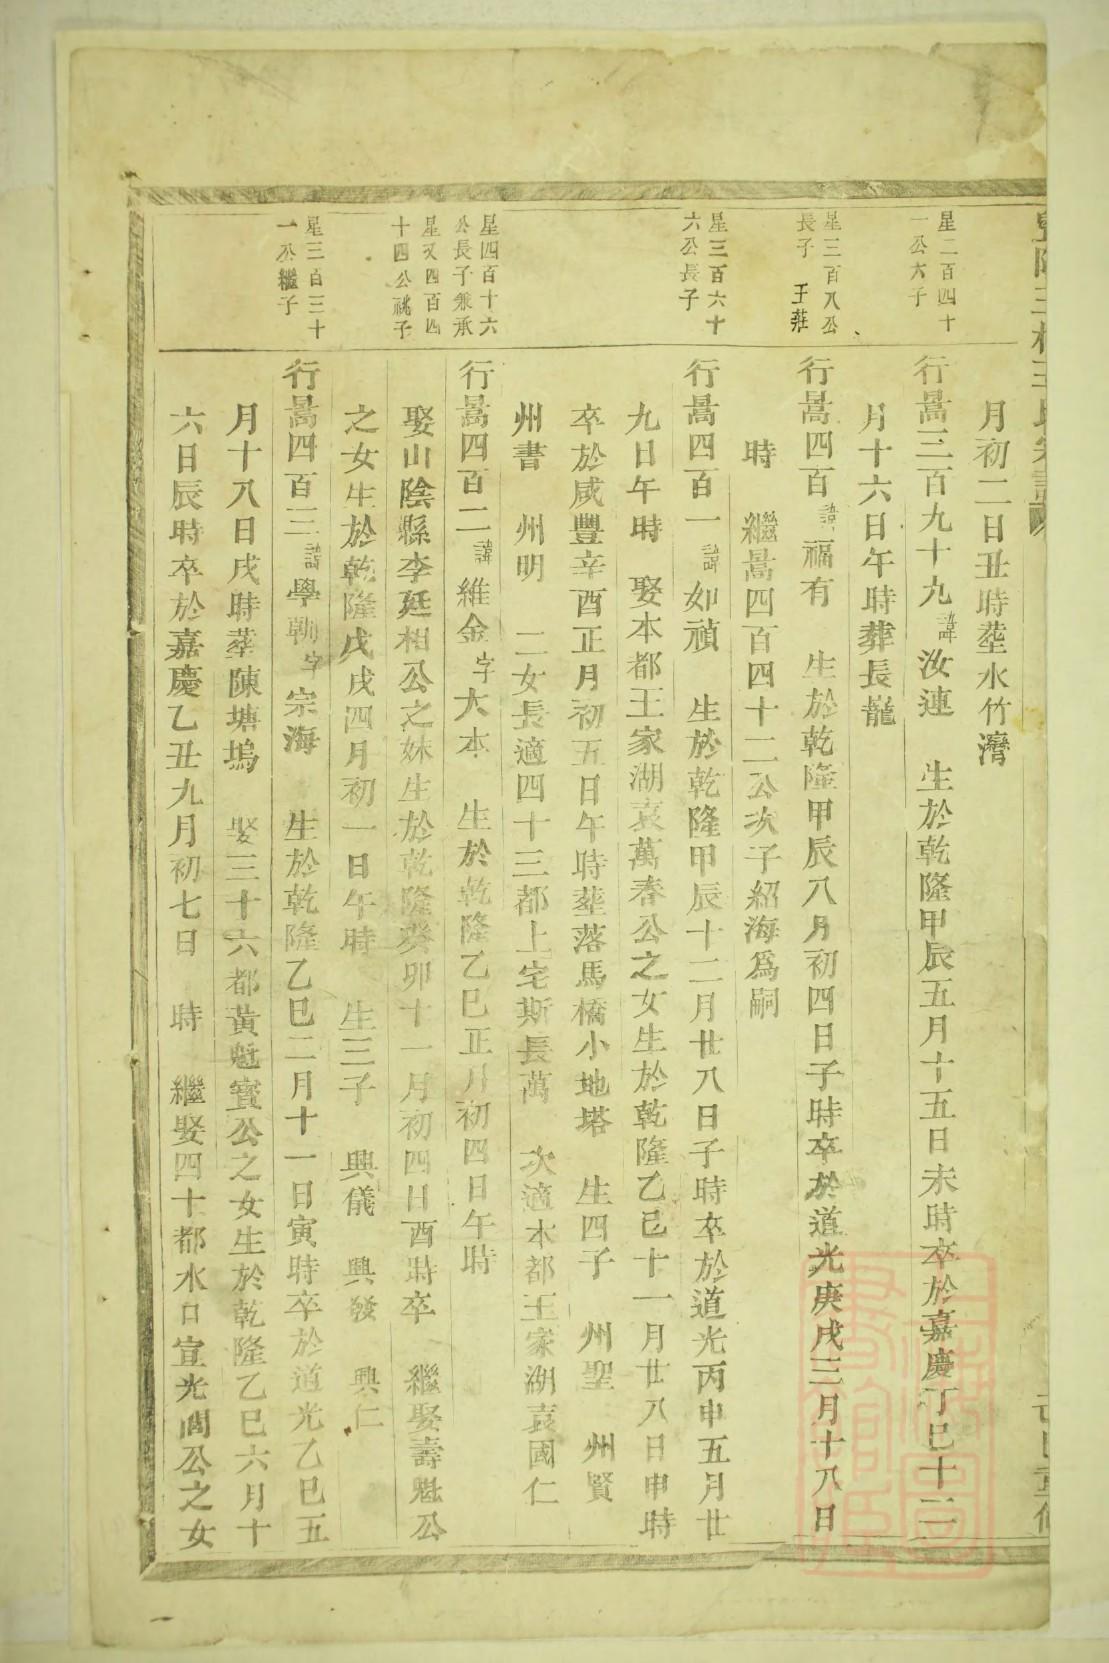 月初二日丑時塟水竹灣
星二百四十
一公六子
行暠三百九十九諱汝連 生於乾隆甲辰五月十五日未時卒於嘉慶丁巳十二
月十六日午時葬長巃
星三百八公
長子 王莊
行暠四百諱福有 生於乾隆甲辰八月初四日子時卒於道光庚戌三月十八日
時 繼暠四百四十二公次子紹海爲嗣
星三百六十
六公長子
行暠四百一諱如禎 生於乾隆甲辰十二月廿八日子時卒於道光丙申五月廿
九日午時 娶本都王家湖袁萬春公之女生於乾隆乙巳十一月廿八日申時
卒於咸豐辛酉正月初五日午時塟落馬橋小地塔 生四子 州聖 州賢
州書 州明 二女長適四十三都上宅斯長萬 次適本都王家湖袁國仁
星四百十六
公長子兼承
星又四百四
十四公祧子
行暠四百二諱維金字大本 生於乾隆乙巳正月初四日午時
娶山陰縣李廷相公之妹生於乾隆癸卯十一月初四日酉時卒 繼娶壽魁公
之女生於乾隆戊戌四月初一日午時 生三子 興儀 興發 興仁
星三百三十
一公繼子
行暠四百三諱學朝字宗海 生於乾隆乙巳二月十一日寅時卒於道光乙巳五
月十八日戌時塟陳塘塢 娶三十六都黃魁賓公之女生於乾隆乙巳六月十
六日辰時卒於嘉慶乙丑九月初七日 時 繼娶四十都水口宣光閶公之女